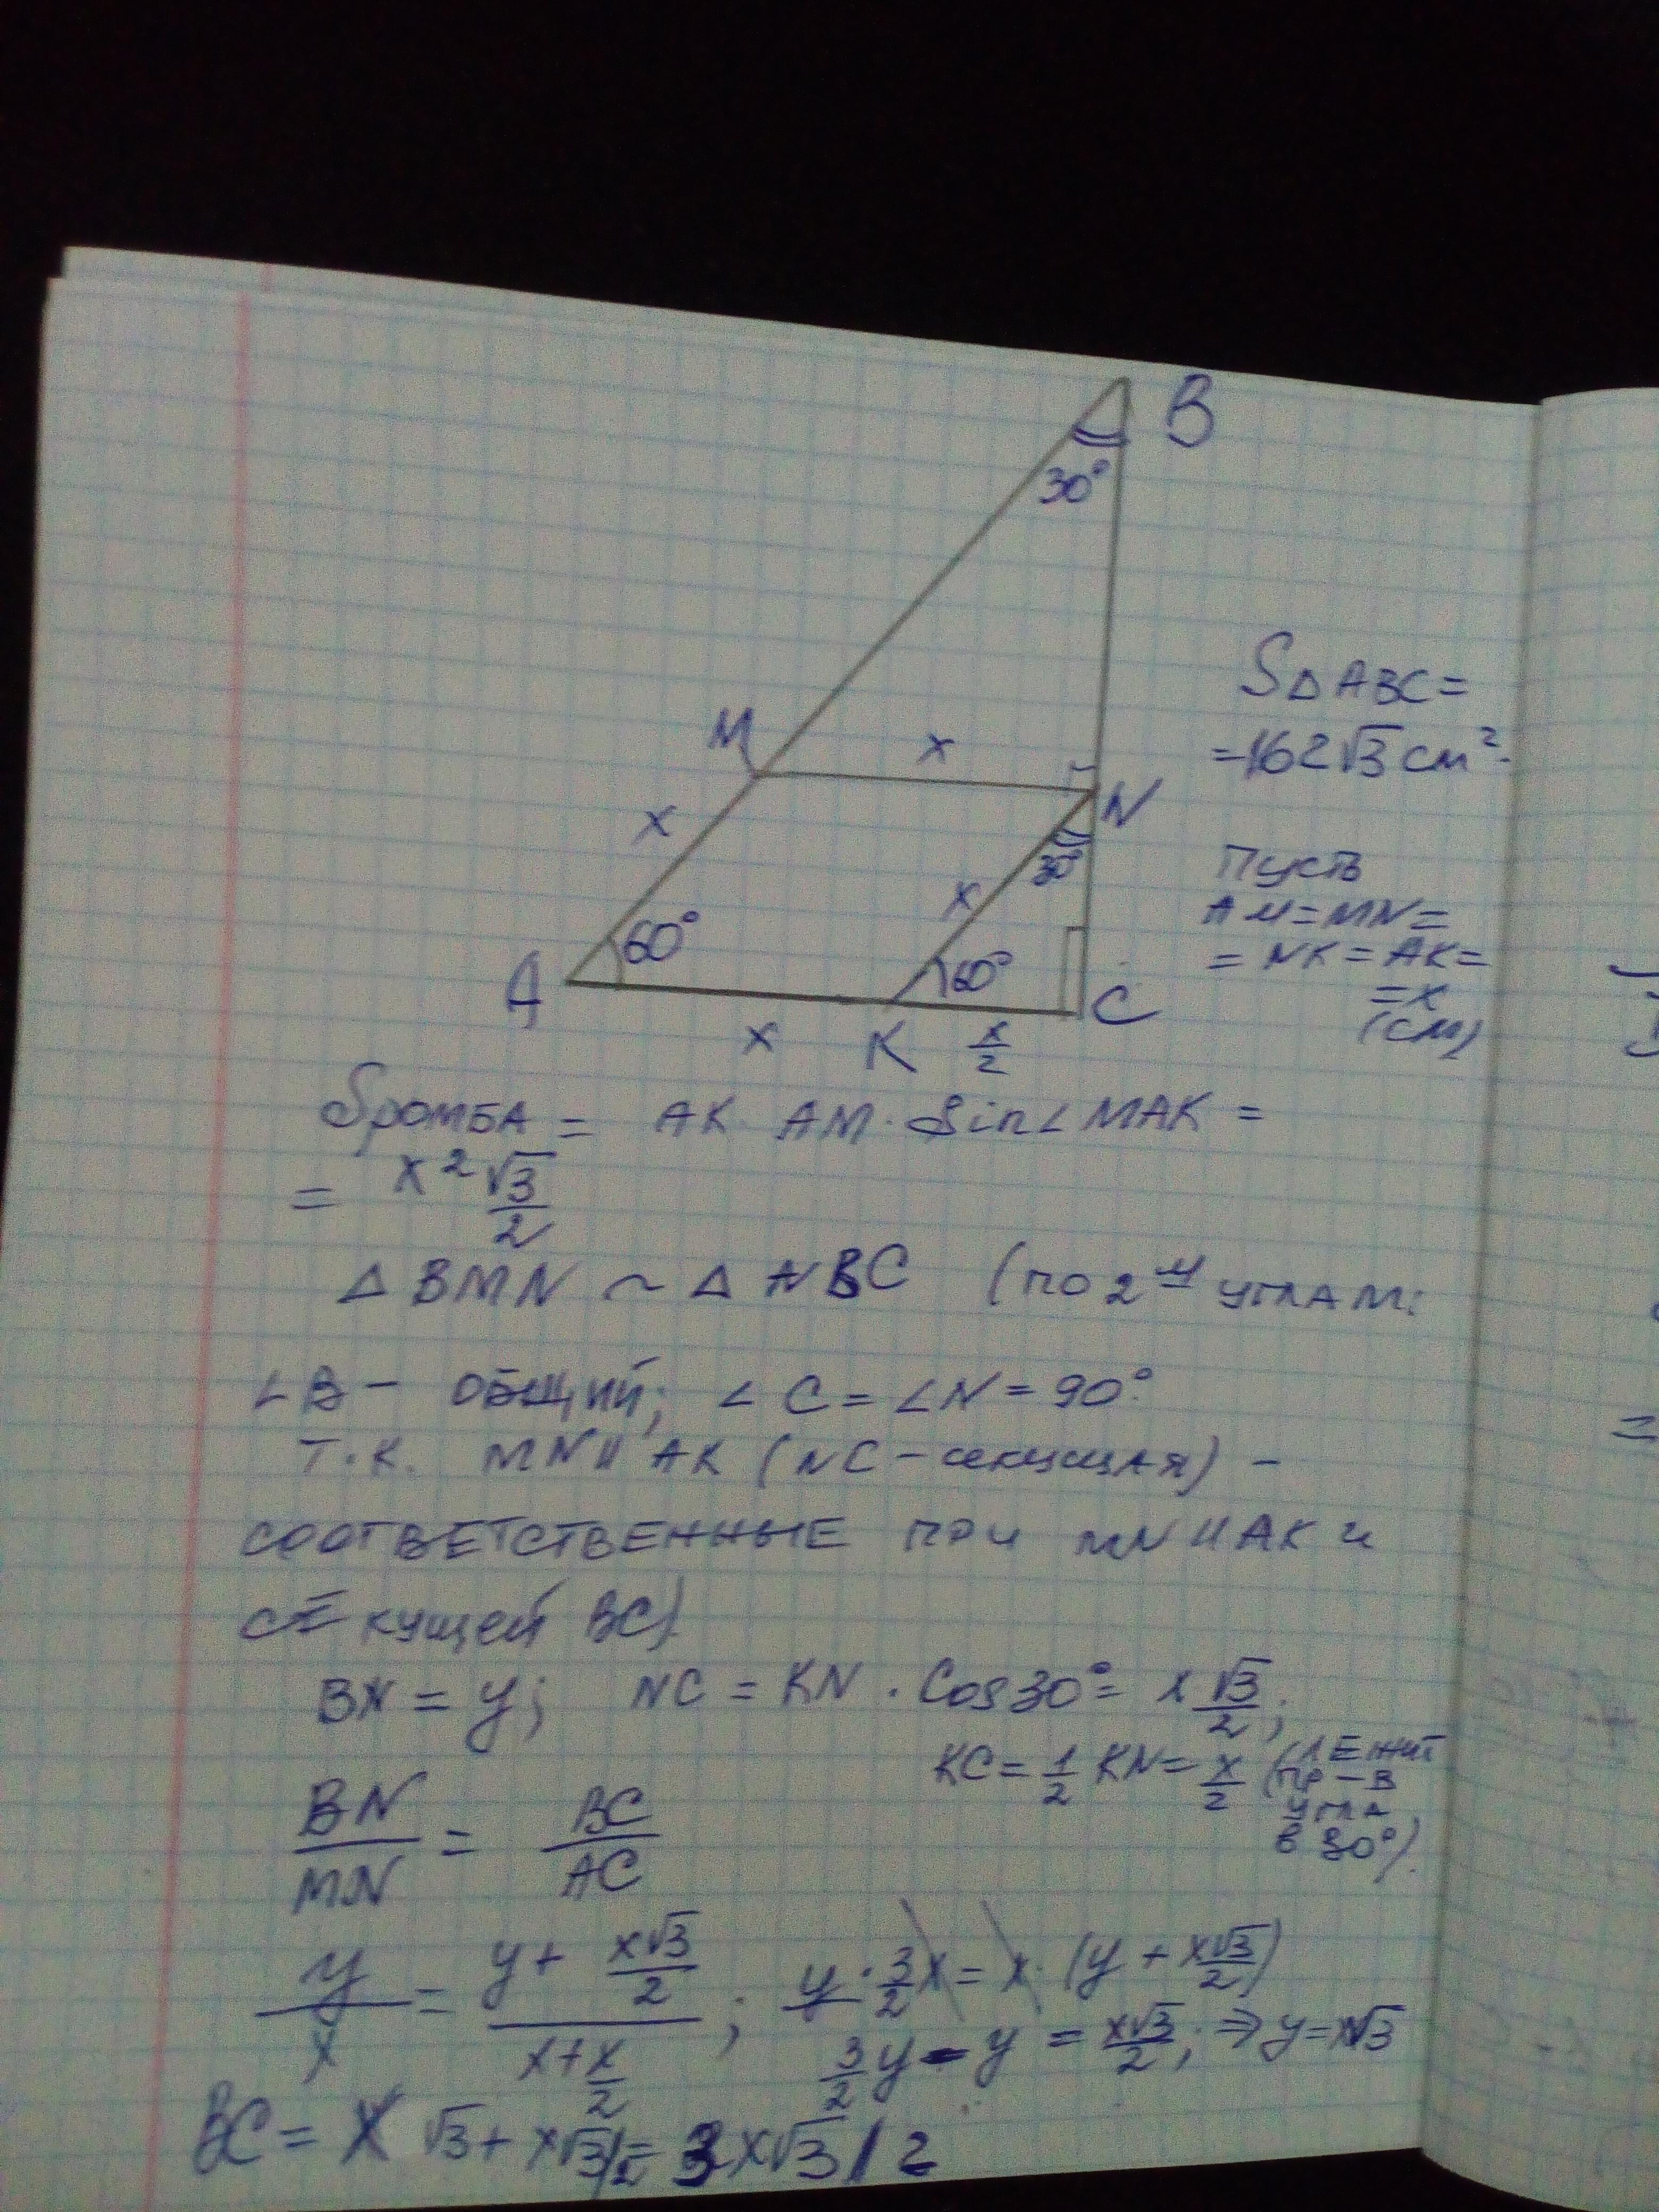 B
30°
M
x
N
x
30°
x
60°
60°
A
C
x
K
x/2
S△ABC=
=162√3 см².
Пусть
AM=MN=
=NK=AK=
=x
(см)
Sромба = AK·AM·Sin∠MAK =
= x²√3/2
△BMN ~ △ABC (по 2м углам:
∠B – общий; ∠C=∠N=90°
т.к. MN∥AK (NC-секущая) –
соответственные при MN∥AK и
секущей BC)
BN = y; NC = KN · Cos30° = x√3/2;
KC = 1/2 KN = x/2 (лежит
пр-в
угла
в 30°).
BN/MN = BC/AC
y/x = (y + x√3/2)/(x+x/2); y·3/2x = x·(y + x√3/2)
3/2y - y = x√3/2; ⇒ y=x√3
BC = x√3 + x√3/2 = 3x√3/2